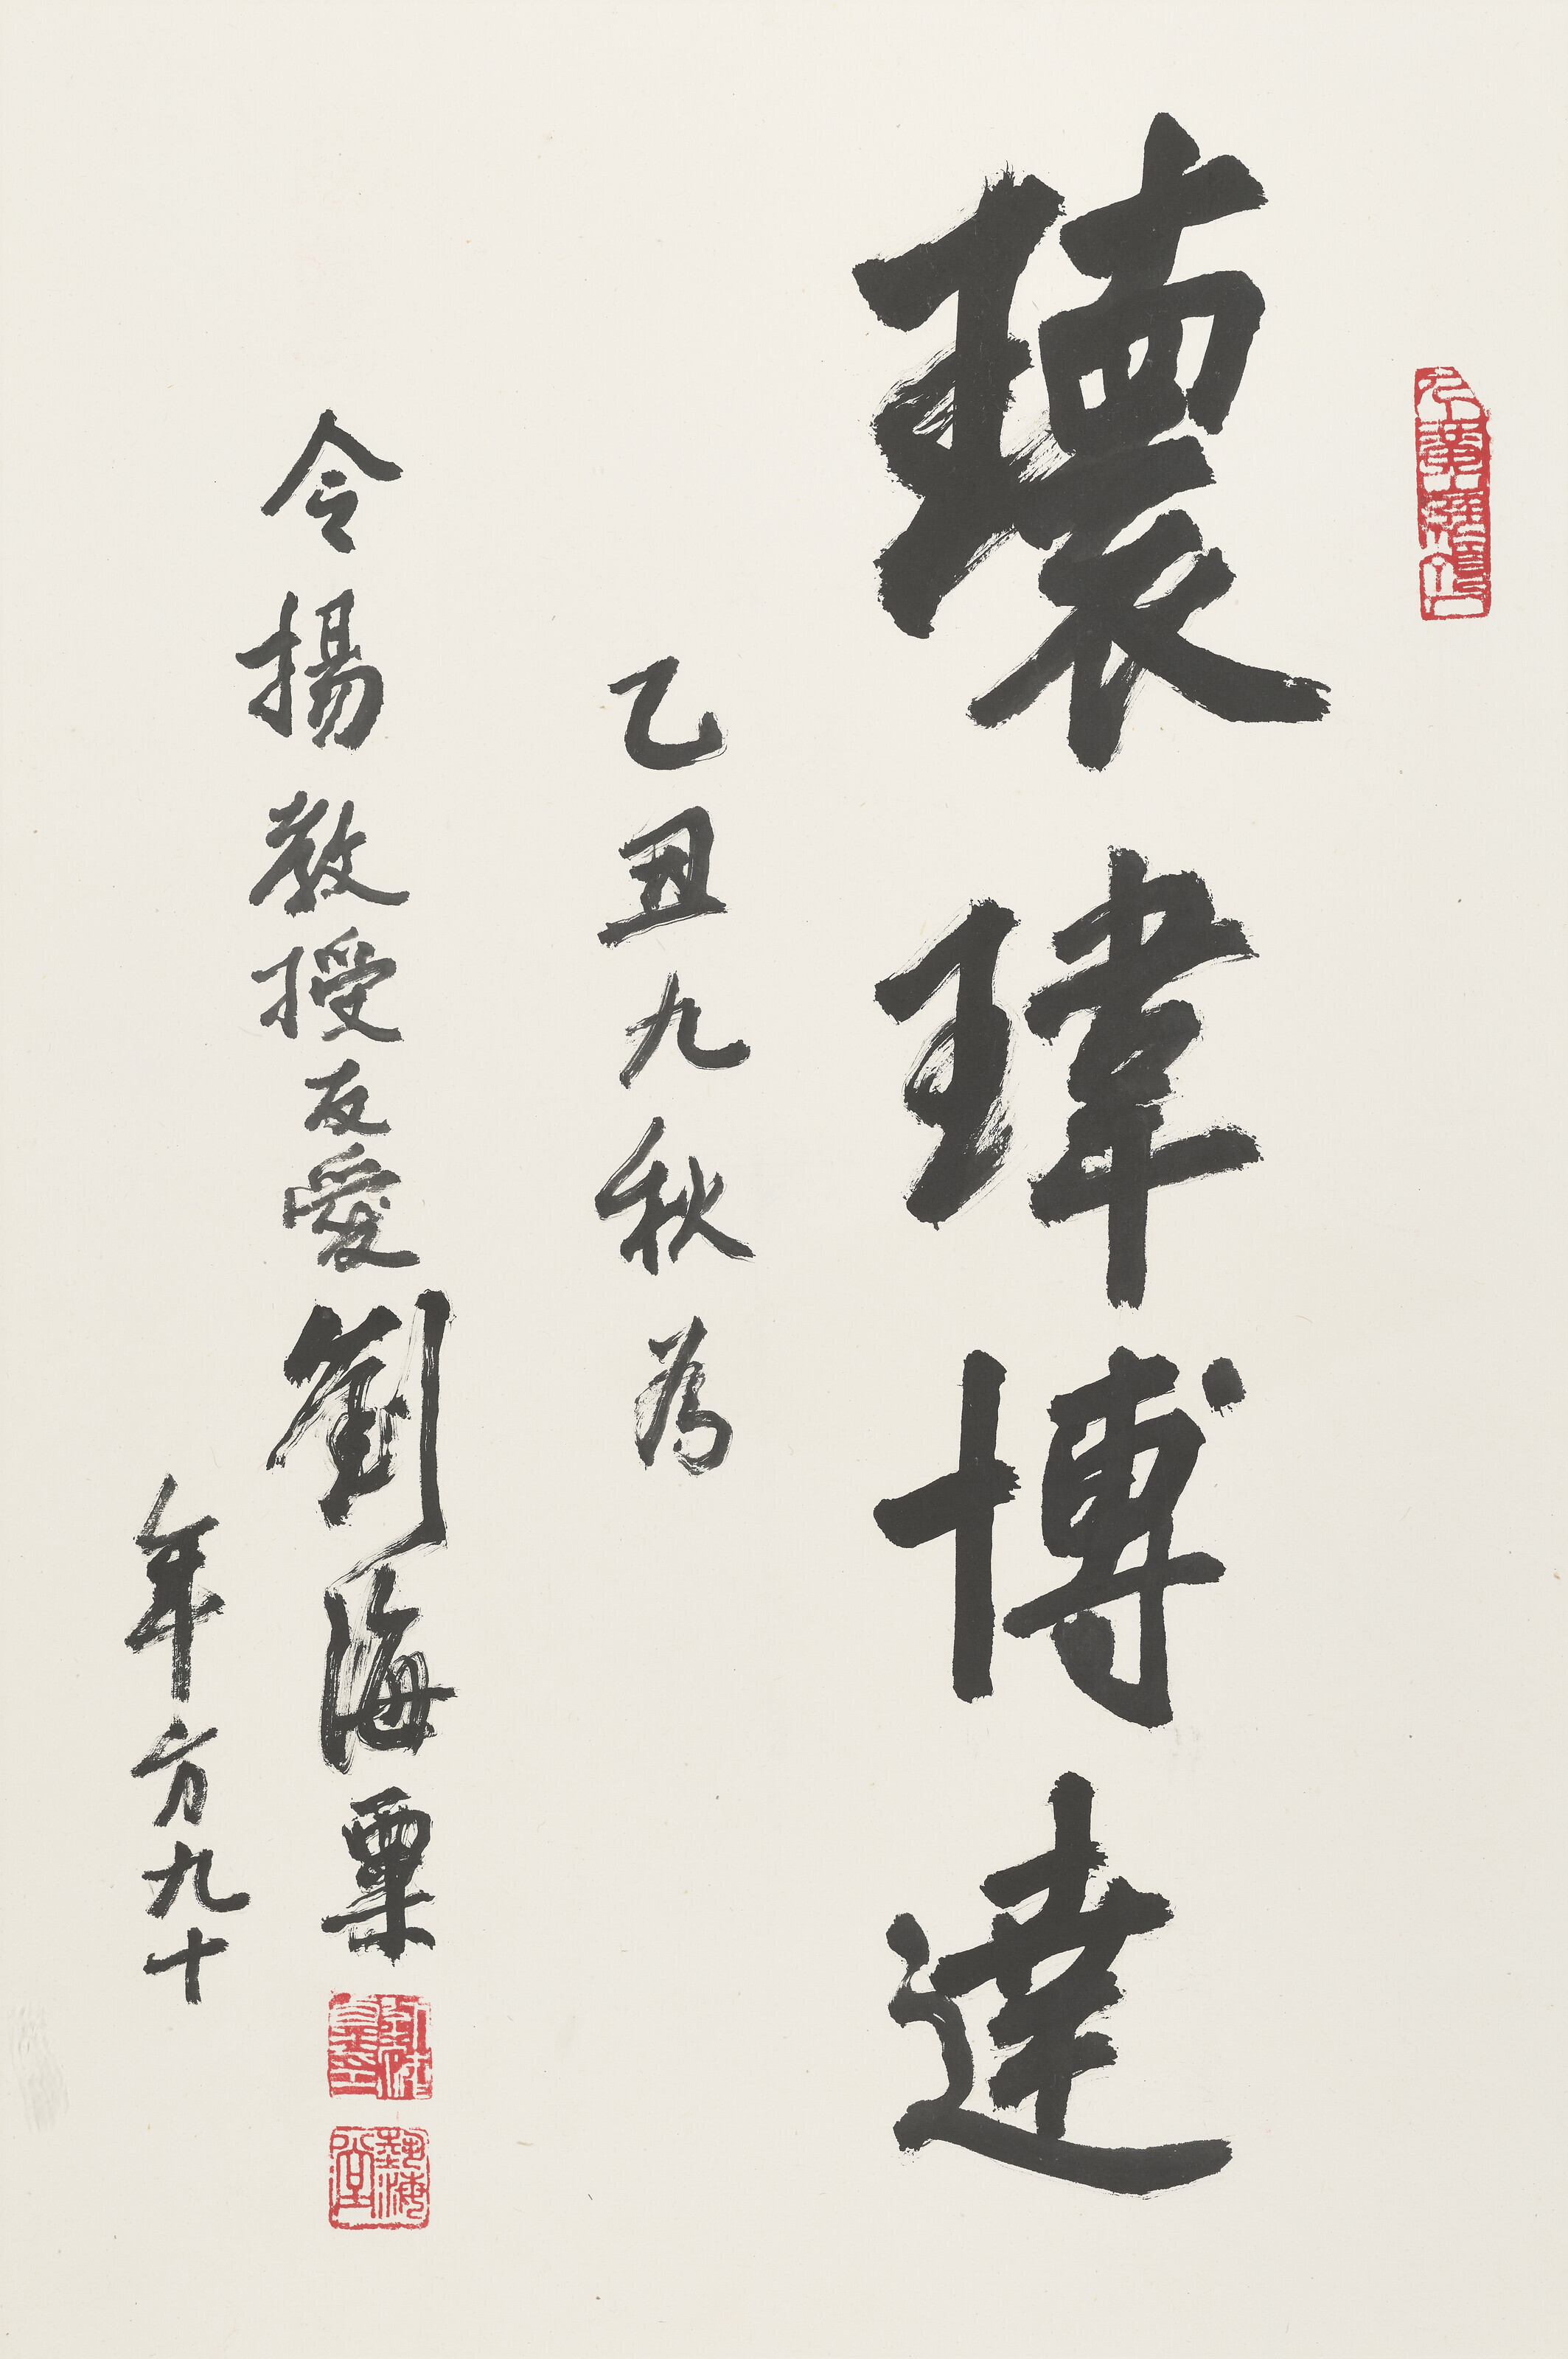 瓌瑋博達
乙丑九秋為
令揚教授友愛劉海粟
年方九十
藝海堂